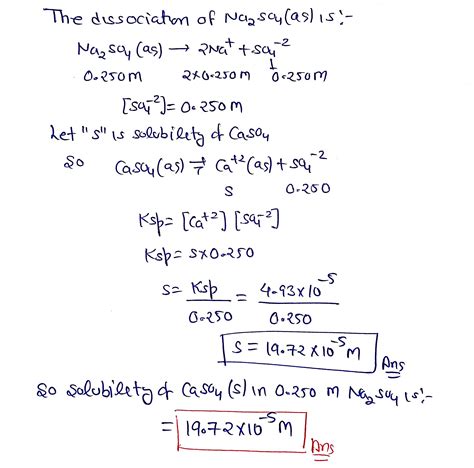 The dissociation of Na2SO4(as) is:-
Na2SO4 (as) → 2Na+ + SO4-2
0.250M 2x0.250M 0.250M
[SO4-2] = 0.250M
Let "s" is solubility of CaSO4
So CaSO4(as) ⇌ Ca+2(as) + SO4-2
S 0.250
Ksp = [Ca+2] [SO4-2]
Ksp = S×0.250
S = Ksp/0.250 = 4.93×10-5/0.250
S = 19.72×10-5 M Ans
So solubility of CaSO4(s) in 0.250 M Na2SO4 is:-
= 19.72×10-5 M Ans